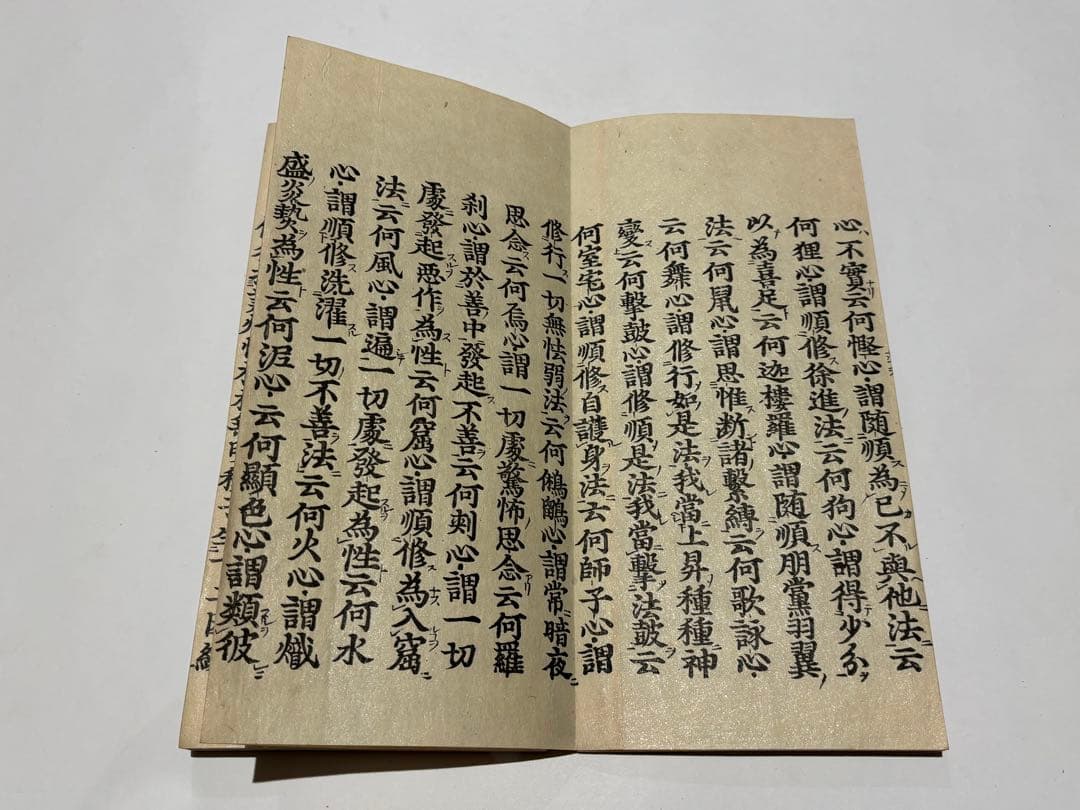 心、不實云何慳心、謂随順為已不與他法云
何狸心謂順修徐進法云何狗心、謂得少分
以為喜足云何迦樓羅心謂随順朋黨羽翼
法云何鼠心、謂思惟断諸繫縛云何歌詠心、
云何舞心謂修行如是法我當上昇種種神
變云何擊鼓心、謂修順是法我當擊法鼓云
何室宅心、謂順修自護身法云何師子心、謂
修行一切無怯弱法云何鵂鶹心、謂常暗夜
思念云何烏心、謂一切處驚怖思念云何羅
刹心謂於善中發起不善云何刺心、謂一切
處發起悪作為性云何窟心、謂順修為入窟
法云何風心、謂遍一切處發起為性云何水
心、謂順修洗濯一切不善法云何火心、謂熾
盛炎㔟為性云何泥心、云何顯色心、謂類彼